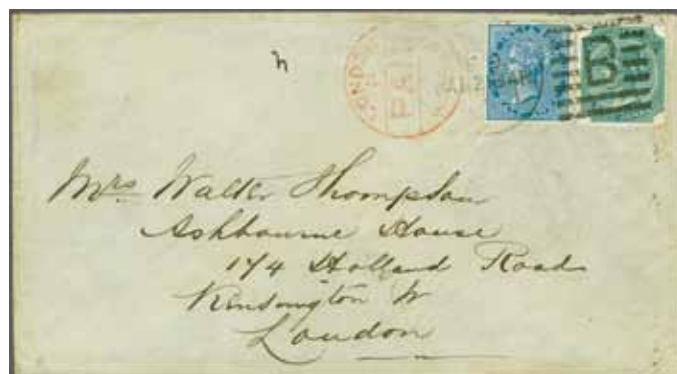 h
LONDON
PAI
B
Mrs Walter Thompson
Ashbourne House
174 Holland Road
Kensington W
London